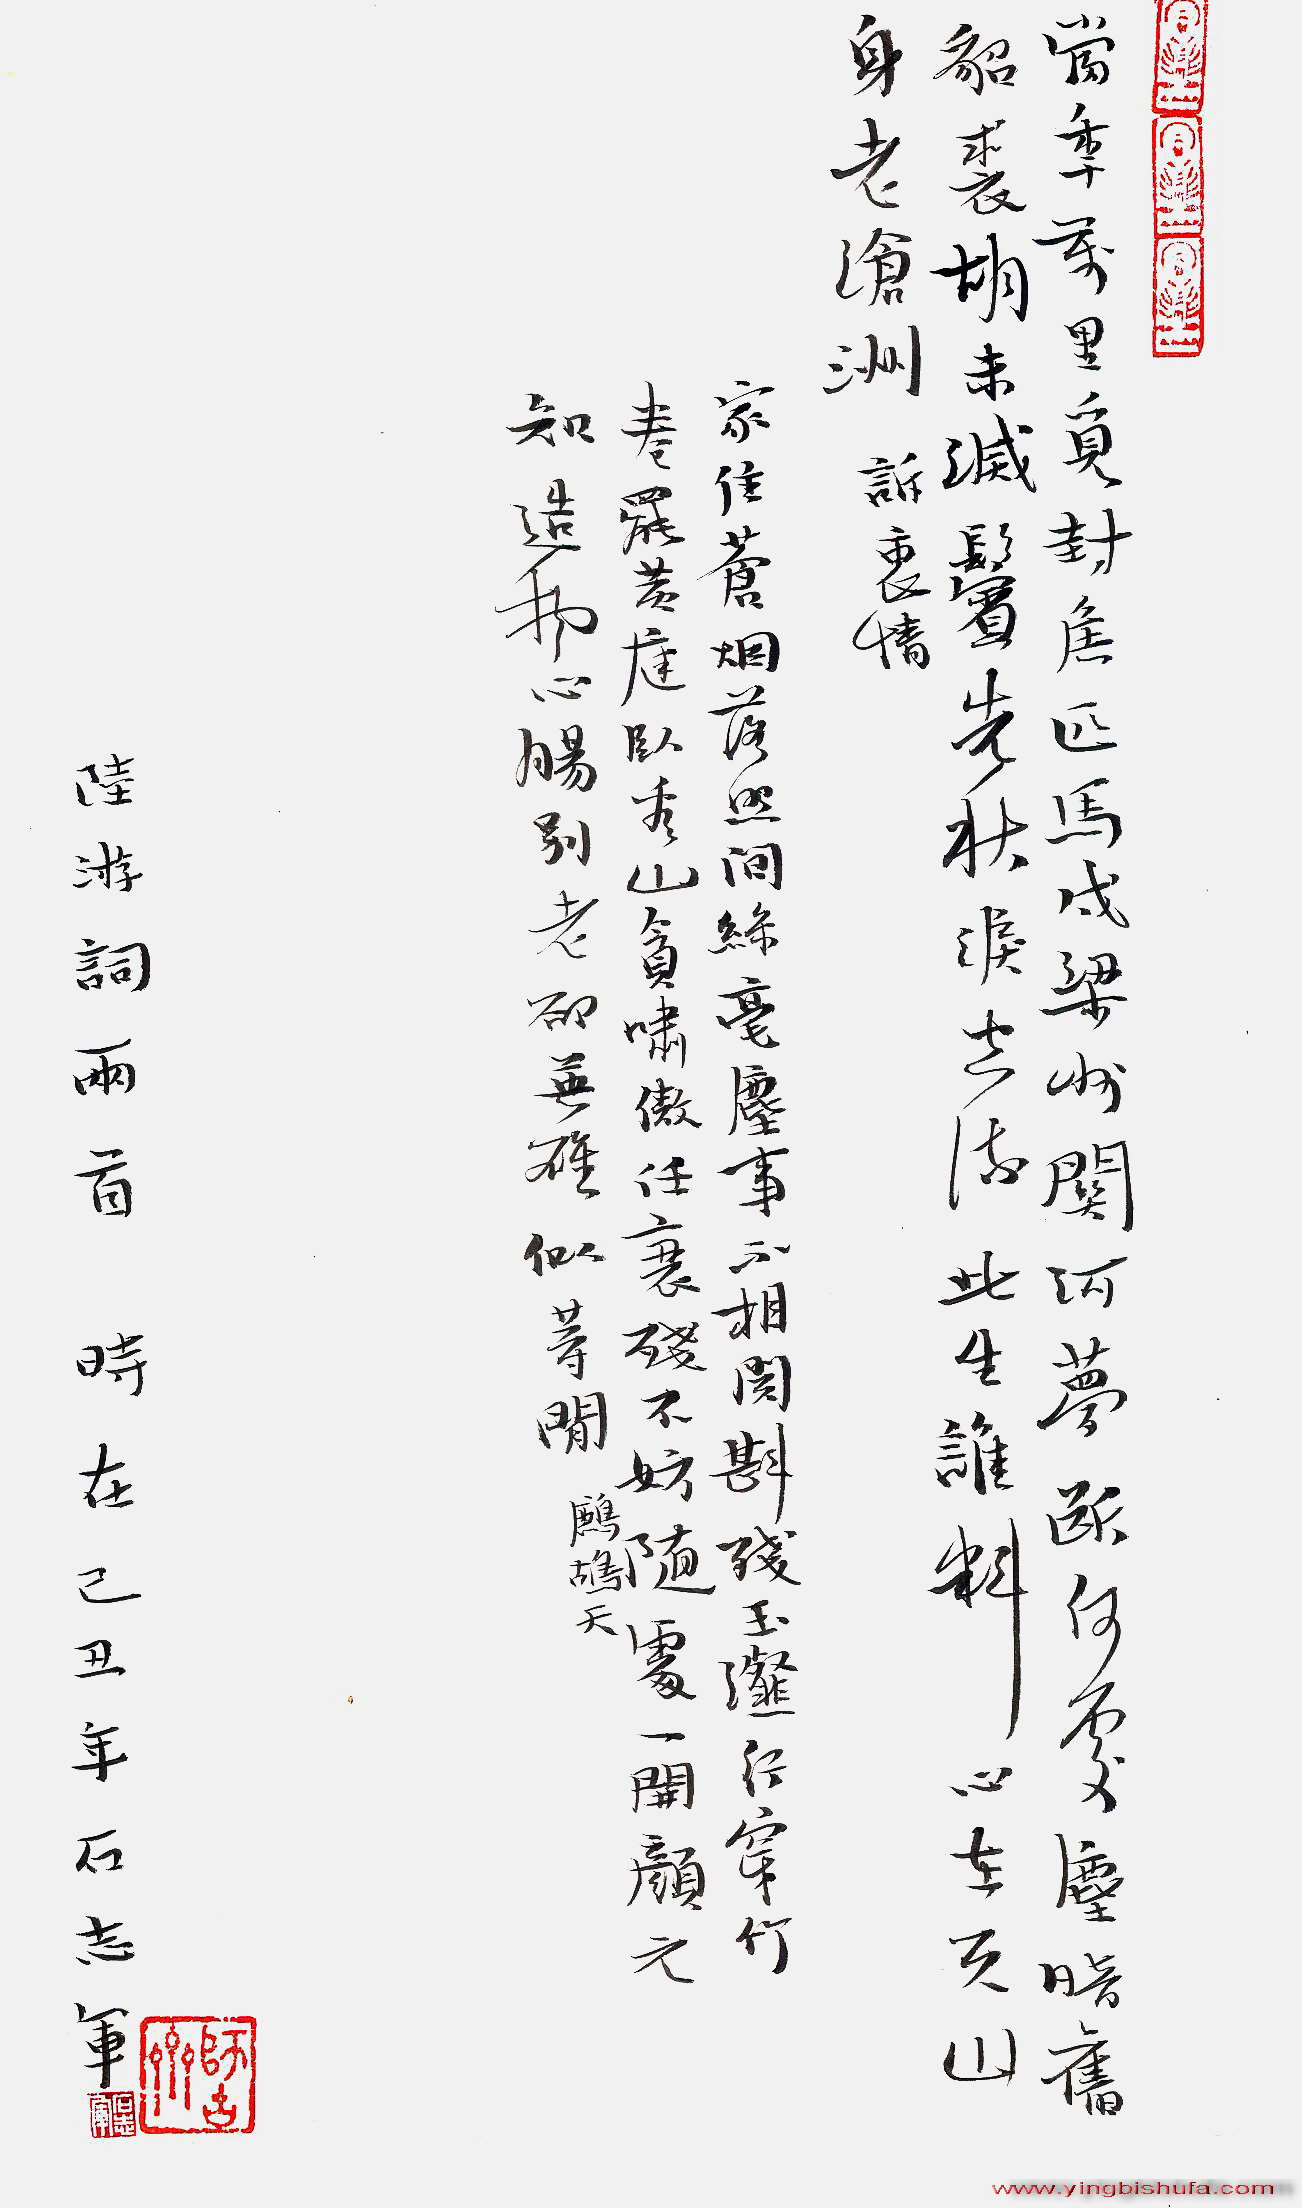 當年萬里覓封侯匹馬戍梁州關河夢斷何處塵暗舊
貂裘胡未滅鬢先秋淚空流此生誰料心在天山
身老滄洲
訴衷情
家住蒼烟落照間絲毫塵事不相関斟殘玉瀣行穿竹
卷罷黄庭臥看山貪嘯傲任衰殘不妨随處一開顔元
知造物心腸别老却無礙似等閒
鷓鴣天
陸游詞兩首 時在己丑年石志軍
www.yingbishufa.com